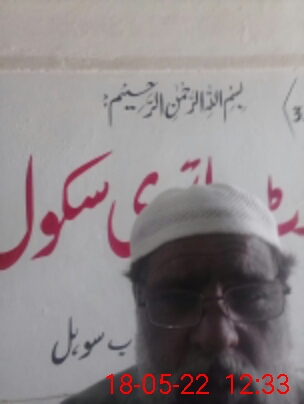 بسم اللہ الرحمٰن الرحیم:
سکول
ب سوہل
18-05-22 12:33